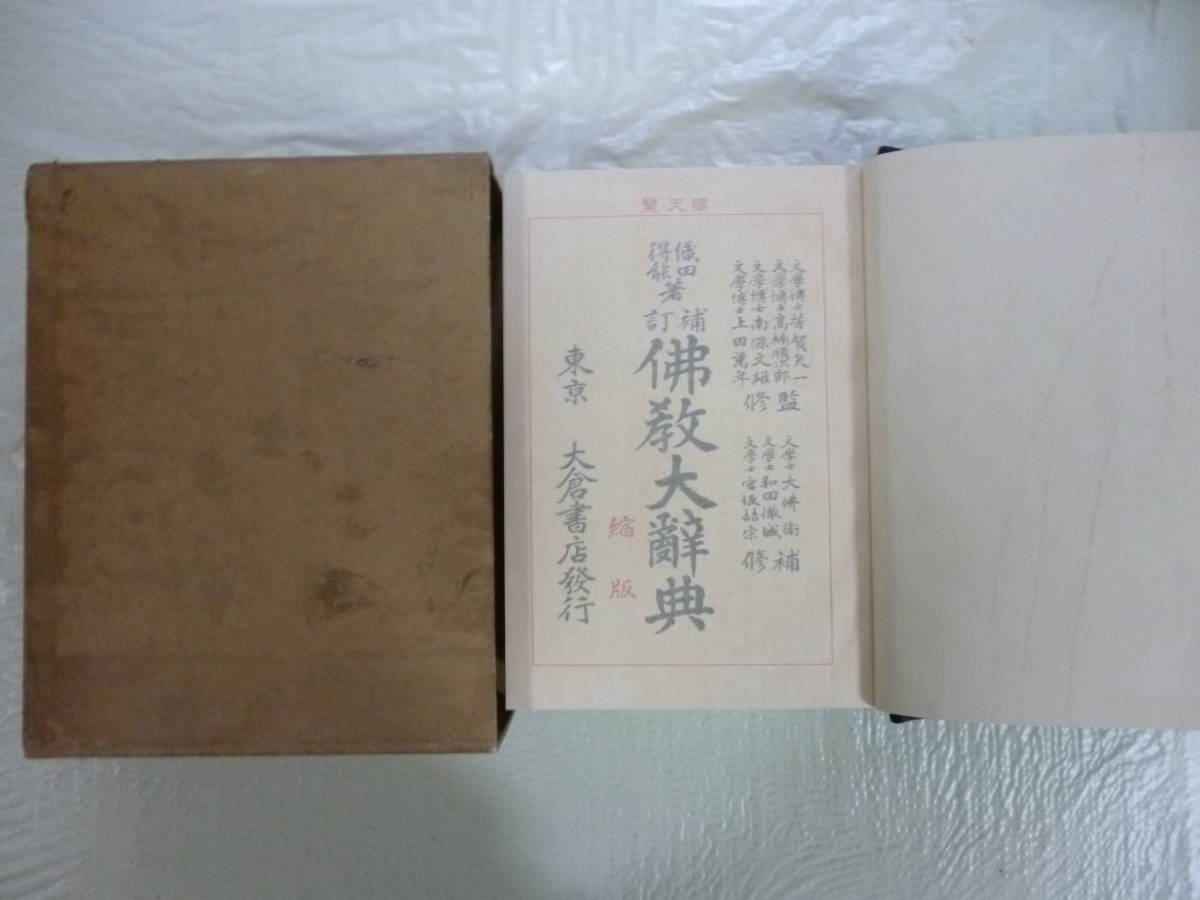 賜天覽
文學博士芳賀矢一
文學博士高楠順次郎
文學博士南條文雄
文學博士上田萬年
監修
文學士大佛衛
文學士和田徹城
文學士宮坂喆宗
補修
織田得能著
補訂
佛教大辭典
縮版
東京 大倉書店發行